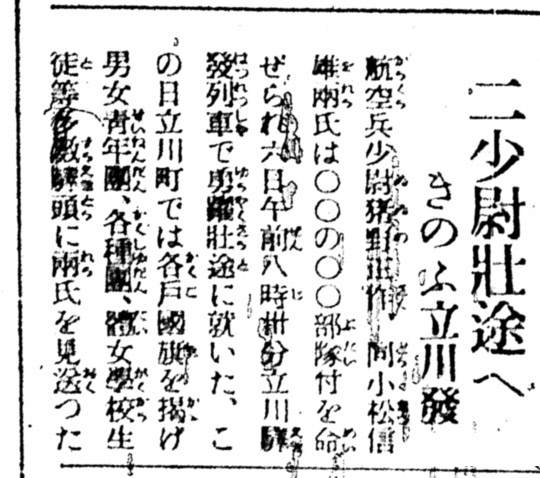 二少尉壯途へ
きのふ立川發
航空兵少尉猪野 作、同小松信
雄兩氏は〇〇の〇〇部隊付を命
ぜられ六日午前八時卅分立川驛
發列車で勇躍壯途に就いた、こ
の日立川町では各戸國旗を揭げ
男女青年團、各種團、 女學校生
徒等多數驛頭に兩氏を見送つた